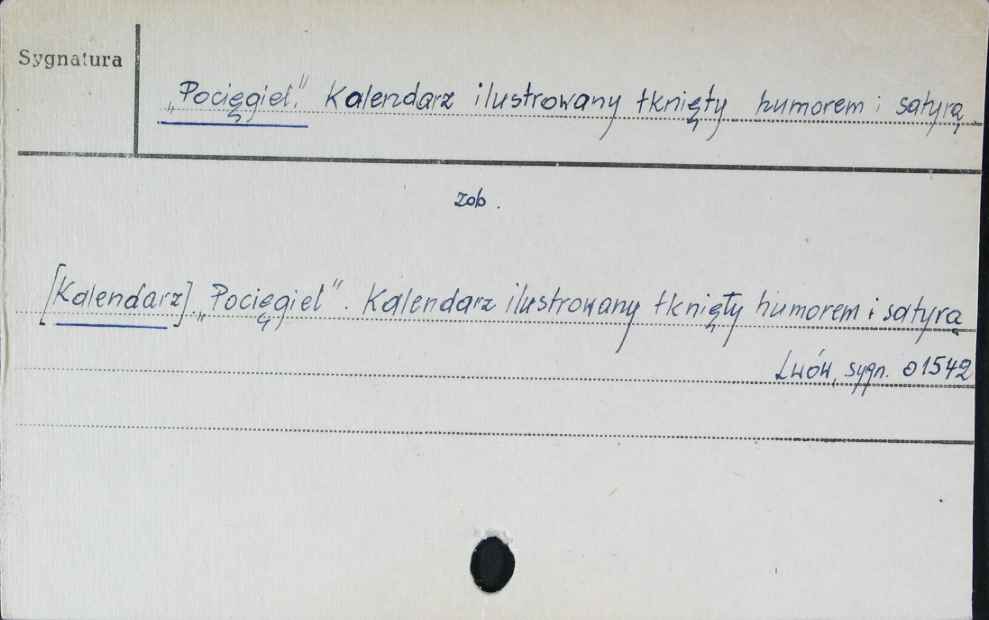 Sygnatura
„Pocięgiel." Kalendarz ilustrowany tknięty humorem i satyrą.
zob.
[Kalendarz] „Pocięgiel". Kalendarz ilustrowany tknięty humorem i satyrą
Lwów, sygn. 01542